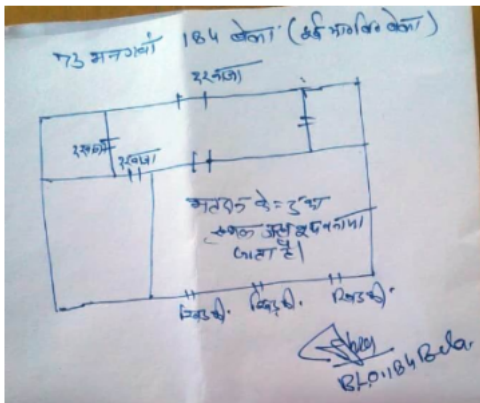 73 मनगवां 184 बेला (हाई मार्केट बेला)
दरवाजा
दरवाजा
दरवाजा
मतदान केन्द्र का
स्थल जहां बूथ बनाया
जाता है।
खिडकी. खिडकी. खिडकी.
BLO 184 Bela.